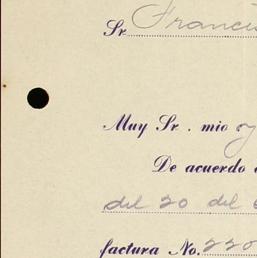 Sr Francis
Muy Sr. mio y
De acuerdo
del 20 del
factura No. 220